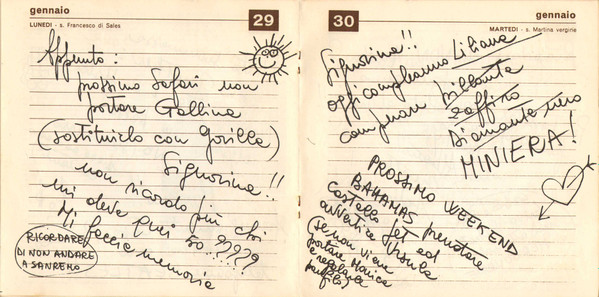 gennaio
LUNEDI - s. Francesco di Sales
29
Appunto:
prossimo Safari non
portare Gallina
(sostituirlo con Gorilla)
Signorina!!
non ricordo più chi
mi deve quei 50..????
Mi faccia memoria
RICORDARE
DI NON ANDARE
A SANREMO
30
gennaio
MARTEDI - s. Martina vergine
Signorina!!
oggi compleanno Liliana
comperare brillante
zaffiro
diamante uno
MINIERA!
PROSSIMO WEEKEND
BAHAMAS prenotare
Castello Jet ed
avvertire Ursula
(se non viene
portare Monica
e regalare